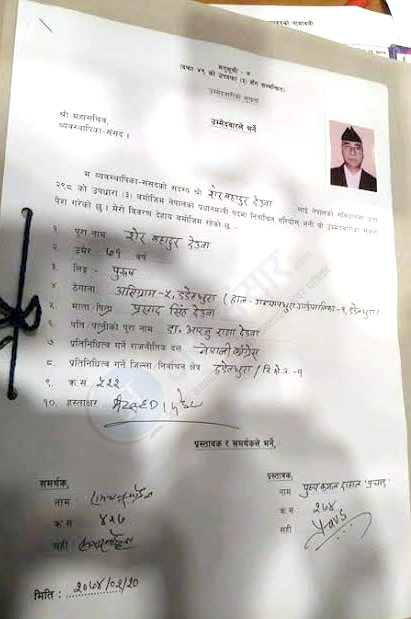 अनुसूची - ७
(दफा ४९ को उपदफा (३) सँग सम्बन्धित)
उम्मेदवारीको सूचना
श्री महासचिव,
व्यवस्थापिका-संसद ।
उम्मेदवारले भर्ने
म व्यवस्थापिका-संसदको सदस्य श्री शेर बहादुर देउवा लाई नेपालको संविधानको धारा
२९८ को उपधारा (३) बमोजिम नेपालको प्रधानमन्त्री पदमा निर्वाचित गरियोस् भनी यो उम्मेदवारी सूचना
पेश गरेको छु । मेरो विवरण देहाय बमोजिम रहेको छ :-
१. पुरा नाम शेर बहादुर देउवा
२. उमेर ७१ वर्ष
३. लिङ्ग :- पुरुष
४. ठेगाना असिग्राम-५, डडेलधुरा (हाल - गन्यापधुरा गाउँपालिका-१, डडेलधुरा)
५. माता/पिता प्रसाद सिंह देउवा
६. पति/पत्नीको पुरा नाम डा. आरजु राणा देउवा
७. प्रतिनिधित्व गर्ने राजनीतिक दल नेपाली कांग्रेस
८. प्रतिनिधित्व गर्ने जिल्ला/निर्वाचन क्षेत्र डडेलधुरा / नि.क्षे.नं.-१
९. क्र.सं ५२२
१०. हस्ताक्षर
प्रस्तावक र समर्थकले भर्ने,
समर्थक,
नाम
क्र.सं ४२७
सही
प्रस्तावक,
नाम पुष्पकमल दाहाल 'प्रचण्ड'
क्र.सं २७४
सही
मिति : २०७४/०२/२०